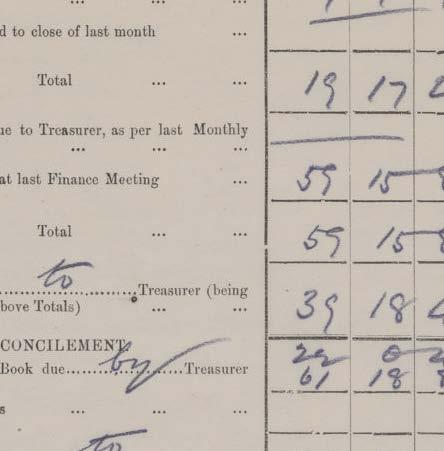 d to close of last month ...
Total ... ... 19 17
ue to Treasurer, as per last Monthly
... ... ...
at last Finance Meeting ... 59 15
Total ... ... 59 15
to
Treasurer (being
bove Totals) ... ... 39 18
CONCILEMENT
Book due by Treasurer 61 18
s ... ... ...
to